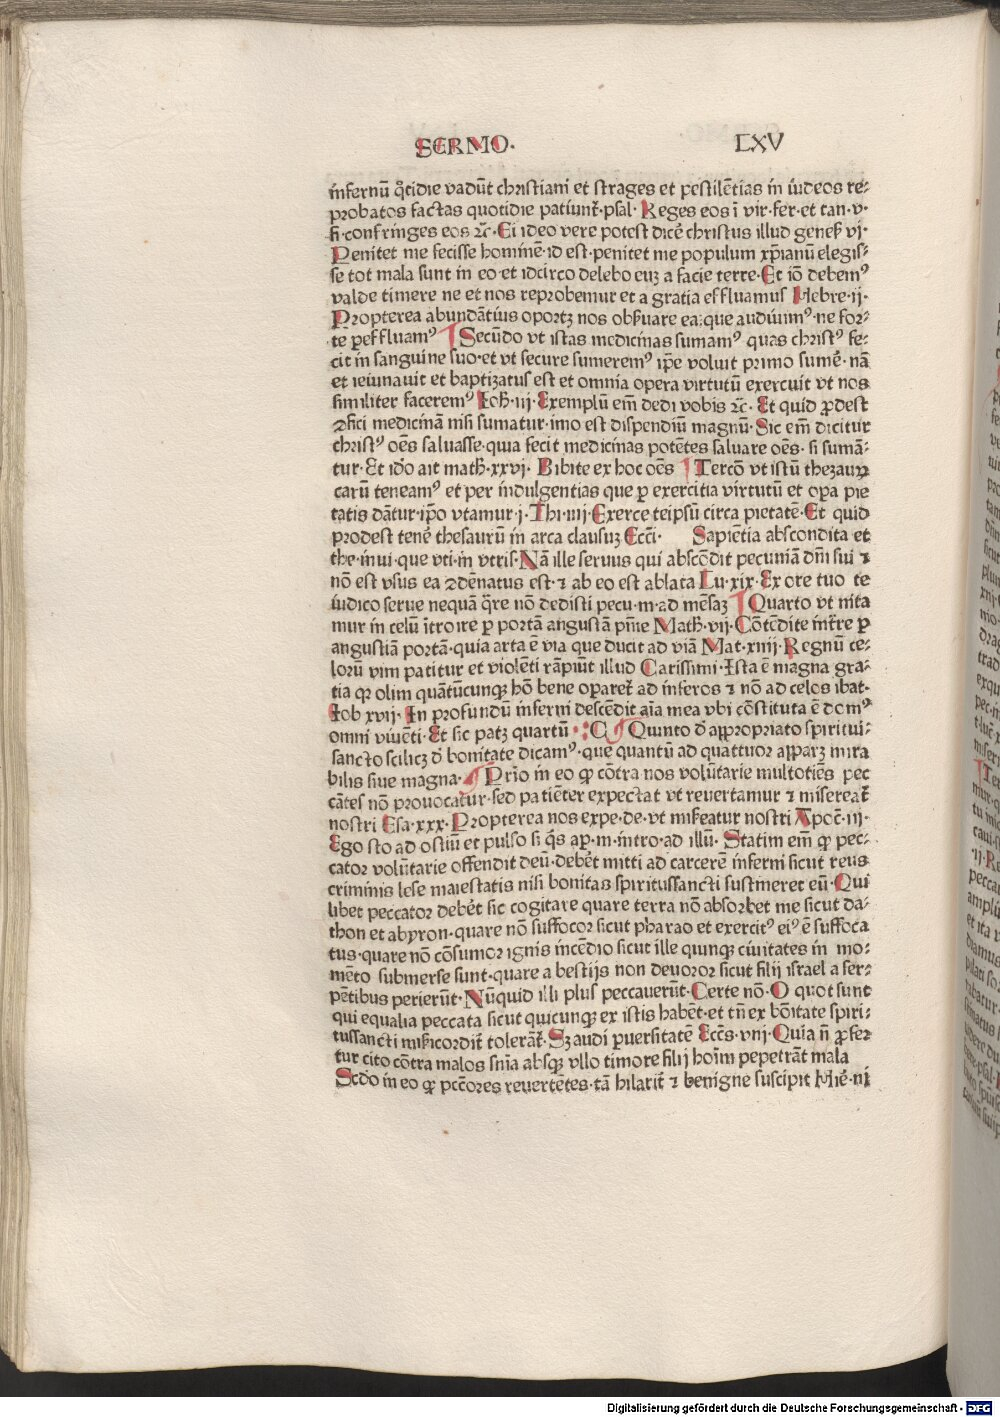 SERMO. LXV
infernū q̄tidie vadūt christiani et strages et pestilētias in iudeos re⸗
probatos factas quotidie patiunt̄·psal· Reges eos ī vir·fer·et tan·v·
fi·confringes eos ⁊c̄· Ei ideo vere potest dicē christus illud geneſ vj·
Penitet me fecisse hominē·id est·penitet me populum xp̄ianū elegis⸗
se tot mala sunt in eo et idcirco delebo euʒ a facie terre·Et iō debemꝰ
valde timere ne et nos reprobemur et a gratia effluamus Hebre·ij·
Propterea abundātius oportʒ nos obẜuare ea:que audiuimꝰ·ne for⸗
te p̱effluamꝰ ¶ Secūdo vt istas medicinas sumamꝰ quas christꝰ fe⸗
cit in sanguine suo·et vt secure sumeremꝰ ip̄e voluit primo sumē·nā
et ieiunauit et baptiʒatus est et omnia opera virtutū exercuit vt nos
similiter faceremꝰ Ioh̄·iij·Exemplū em̄ dedi vobis ⁊c̄· Et quid ꝓdest
ꝯfici medicinā nisi sumatur·imo est dispendiū magnū·Sic em̄ dicitur
christꝰ oēs saluasse·quia fecit medicinas potētes saluare oēs·si sumā⸗
tur·Et id̄o ait math̄·xxvj· Bibite ex hoc oēs ¶ Tercō vt istū theʒauꝝ
carū teneamꝰ et per indulgentias que p̱ exercitia virtutū et oꝑa pie
tatis dātur·ip̄o vtamur·j·Thi·iiij·Exerce teipsū circa pietatē·Et quid
prodest tenē thesaurū in arca clausuʒ Ecc̄i· Sapiētia abscondita et
the·inui·que vti·in vtris·Nā ille seruus qui abscōdit pecuniā dn̄i sui ⁊
nō est vsus ea ꝯdēnatus est·⁊ ab eo est ablata Lu·xix·Ex ore tuo te
iudico serue nequā q̄re nō dedisti pecu·m·ad mēsaʒ ¶ Quarto vt nita
mur in celū ītroire p̱ portā angustā pn̄ie Math̄·vij·Cōtēdite int̄re p̱
angustiā portā·quia arta ē via que ducit ad viā Mat·xiiij·Regnū ce⸗
lorū vim patitur et violēti rāpiūt illud Carissimi·Ista ē magna gra⸗
tia qꝛ olim quātūcunqꝫ hō bene oꝑaret̄ ad inferos ⁊ nō ad celos ibat·
Iob xvij·In profundū inferni descēdit aīa mea vbi cōstituta ē domꝰ
omni viuēti·Et sic patʒ quartū ·:C ¶ Quinto d̄ aꝓpropriato spiritui⸗
sancto scilicʒ d̄ bonitate dicamꝰ·que quantū ad quattuor apparʒ mira
bilis siue magna· ¶ Prīo in eo ꝙ cōtra nos volūtarie multotiēs pec
cātes nō prouocatur·sed patiēter expectat vt reuertamur ⁊ misereat̄
nostri Esa·xxx·Propterea nos expe·de·vt miẜeatur nostri Apoc̄·iij·
Ego sto ad ostiū et pulso si q̄s aꝑ·m·intro·ad illū· Statim em̄ ꝙ pec⸗
cator volūtarie offendit deū·debēt mitti ad carcerē inferni sicut reus
criminis lese maiestatis nisi bonitas spiritussancti sustineret eū·Qui
libet peccator debēt sic cogitare quare terra nō absorbet me sicut da⸗
thon et abyron·quare nō suffocor sicut pharao et exercitꝰ eiꝰ ē suffoca
tus·quare nō cōsumor ignis incēdio sicut ille quinqꝫ ciuitates in mo⸗
mēto submerse sunt·quare a bestijs non deuoror sicut filij israel a ser⸗
pētibus perierūt·Nūquid illi plus peccauerūt·Certe nō·O quot sunt
qui equalia peccata sicut quicunqꝫ ex istis habēt·et tn̄ ex bōitate spiri⸗
tussancti miẜicordit̄ tolerāt̄·Sʒ audi p̱uersitatē Ecc̄s·viij·Quia n̄ ꝓfer
tur cito cōtra malos sn̄ia absqꝫ vllo timore filij hoīm pepetrāt mala
Scdo in eo ꝙ pctōres reuertētes·tā hilarit̄ ⁊ benigne suscipit Hiē·iij
Digitalisierung gefördert durch die Deutsche Forschungsgemeinschaft - DFG